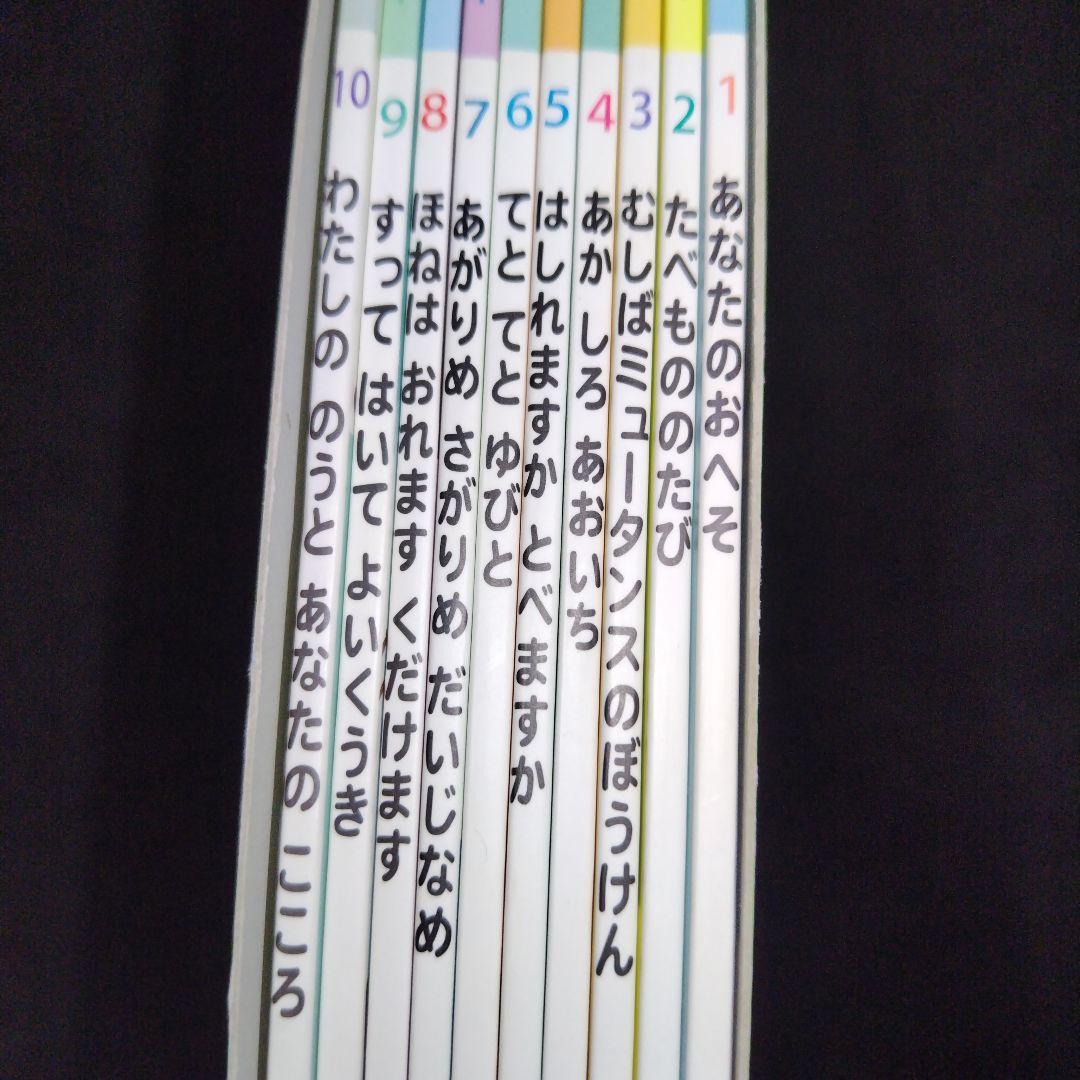 1
あなたのおへそ
2
たべもののたび
3
むしばミュータンスのぼうけん
4
あか しろ あおいち
5
はしれますか とべますか
6
てと てと ゆびと
7
あがりめ さがりめ だいじなめ
8
ほねは おれます くだけます
9
すって はいて よいくうき
10
わたしの のうと あなたの こころ